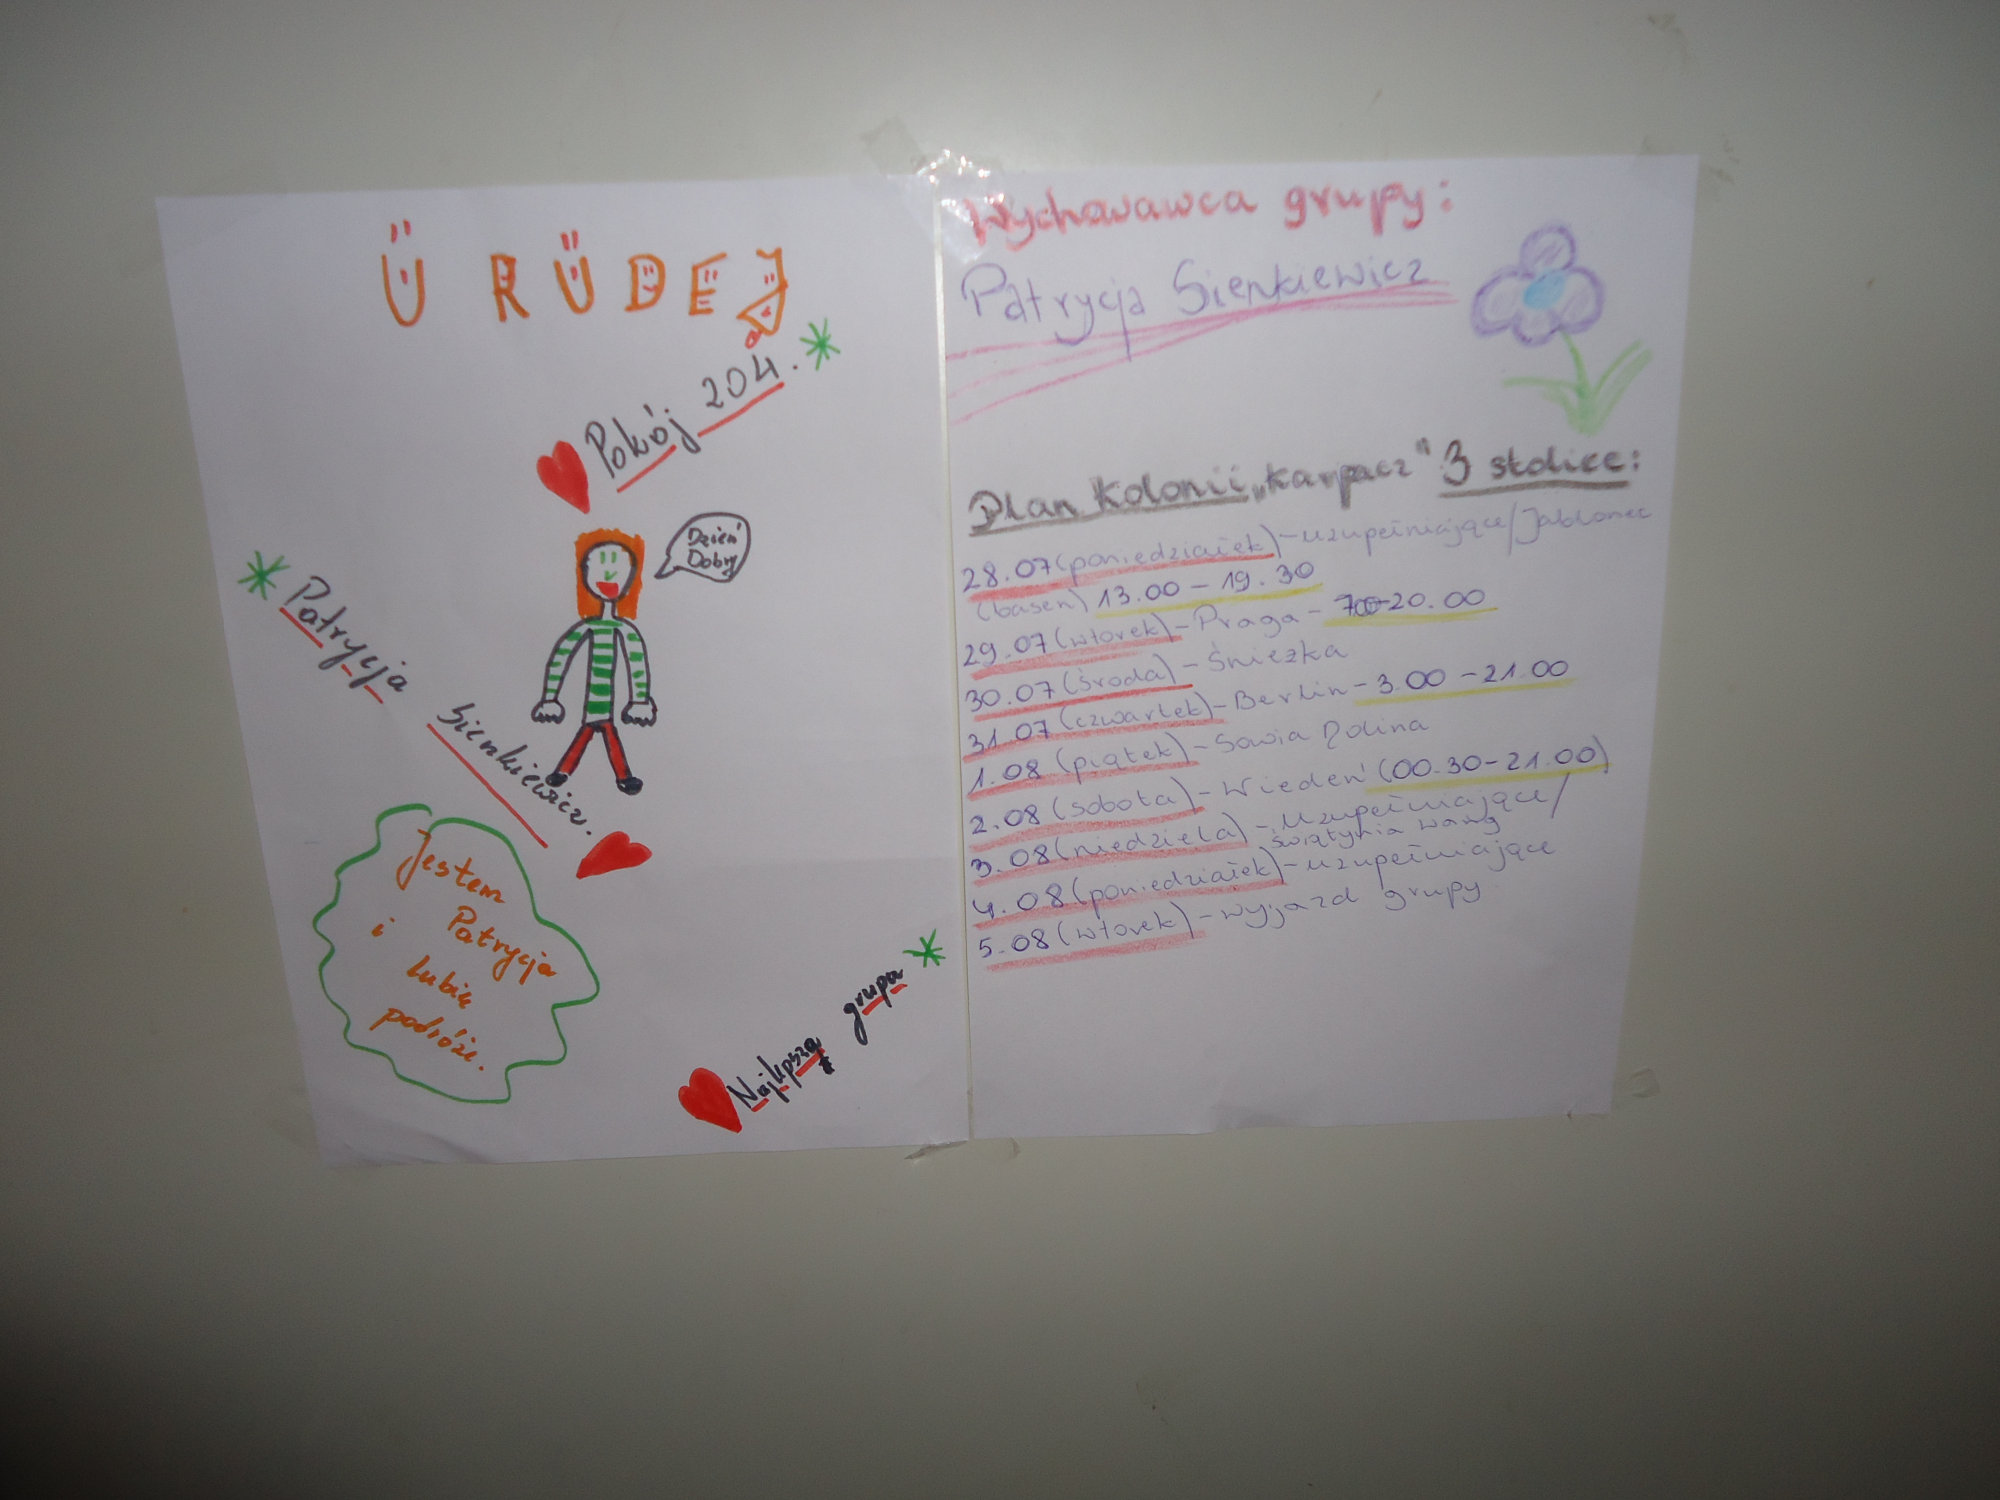 Ü RÜDEJ
Pokój 204.
Dzień
Dobry
Patrycja Sienkiewicz.
Jestem
Patrycja
i lubię
podróże.
Najlepsza grupa
Wychowawca grupy:
Patrycja Sienkiewicz
Plan Kolonii „Karpacz" 3 stolice:
28.07 (poniedziałek) - uzupełniające/Jablonec
(basen) 13.00 - 19.30
29.07 (wtorek) - Praga - 700-20.00
30.07 (środa) - Śnieżka
31.07 (czwartek) - Berlin - 3.00 - 21.00
1.08 (piątek) - Sowia Dolina
2.08 (sobota) - Wiedeń (00.30-21.00)
3.08 (niedziela) - uzupełniające/
świątynia wang
4.08 (poniedziałek) - uzupełniające
5.08 (wtorek) - wyjazd grupy